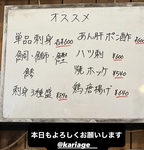 オススメ
単品刺身 各¥600
鯛・鰤・鰹
鯵
刺身3種盛 ¥890
あん肝ポン酢 ¥600
ハツ刺 ¥600
焼ホッケ ¥540
鶏唐揚げ ¥640
本日もよろしくお願いします
@kariage